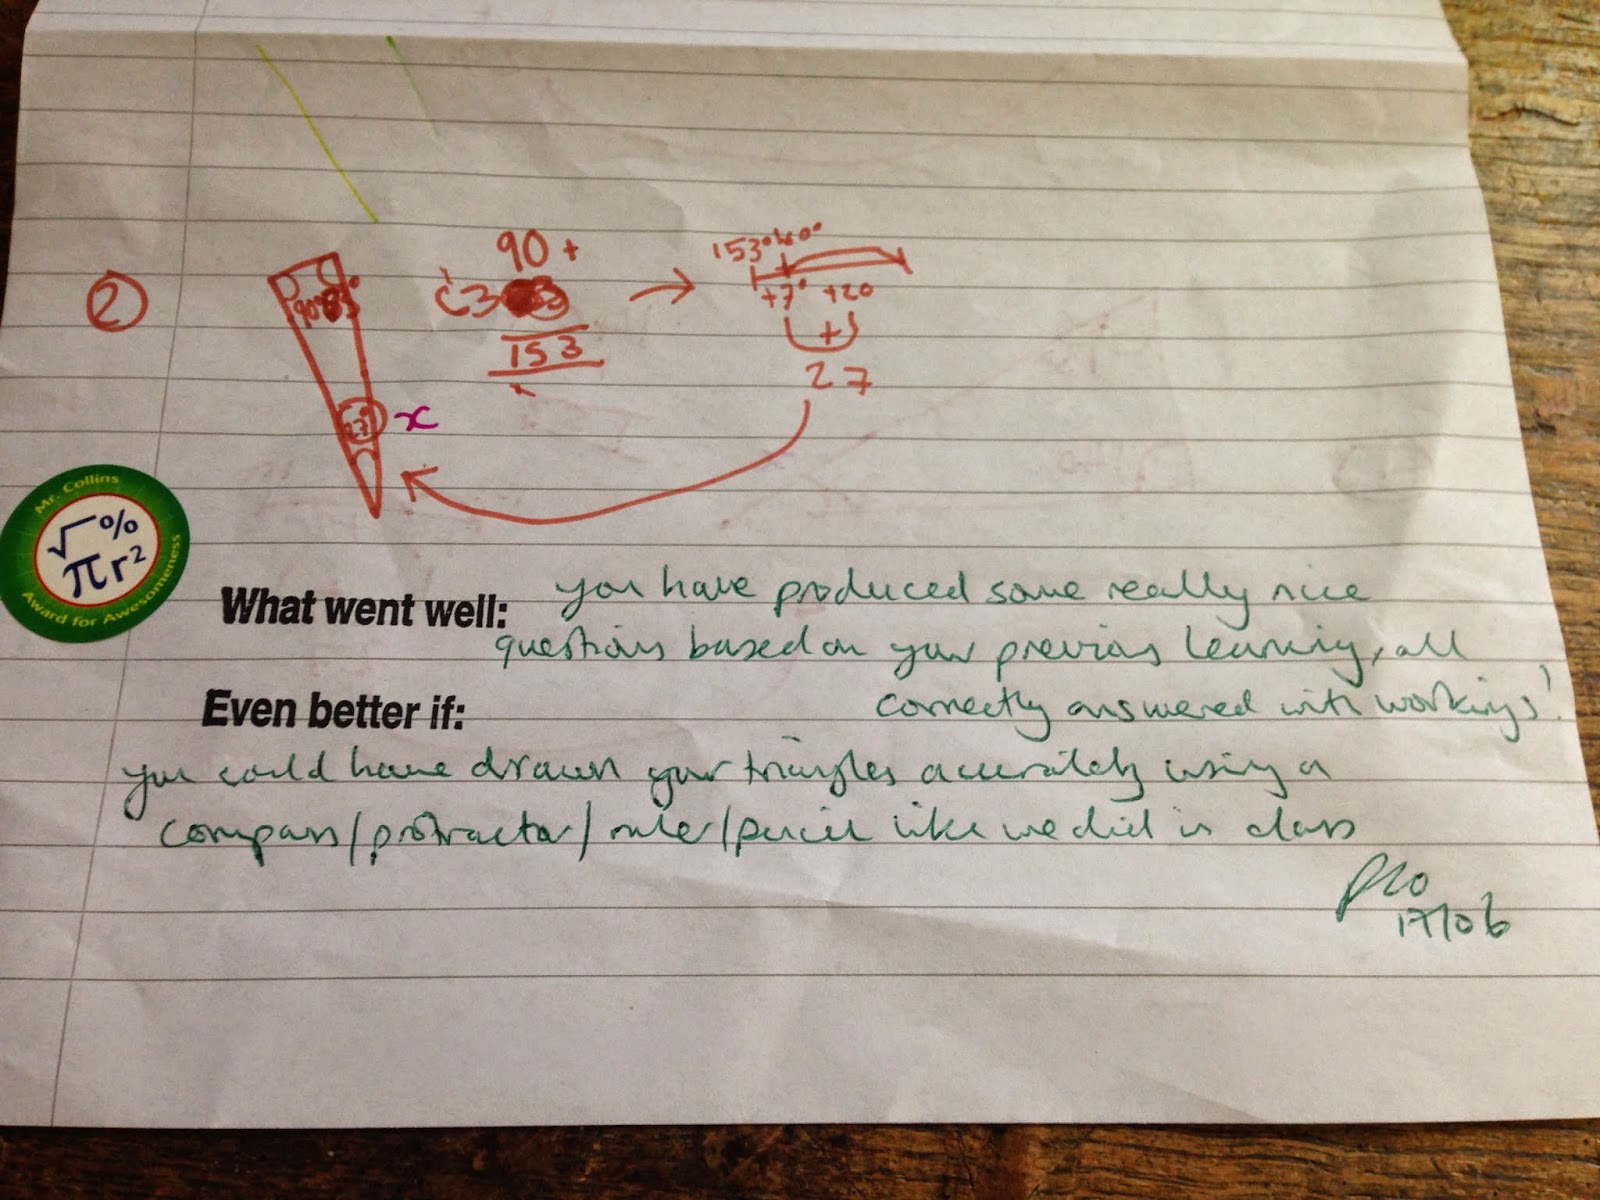 2
90 +
63
153
153° 160°
+7° +20
+
27
90° 63°
27°
x
Mr. Collins
√ %
πr²
Award for Awesomeness
What went well: you have produced some really nice
questions based on your previous learning, all
correctly answered with workings!
Even better if:
you could have drawn your triangles accurately using a
compass/protractor/ruler/pencil like we did in class
17/06